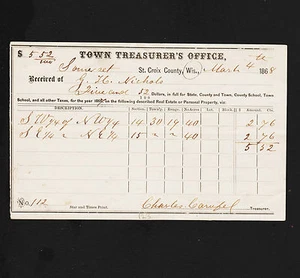 $ 5 52/100 TOWN TREASURER'S OFFICE,
Somerset St. Croix County, Wis., March 4 1868
Received of J. H. Nichols
Five and 52/100 Dollars, in full for State, County and Town, County School, Town
School, and all other Taxes, for the year 186 , on the following described Real Estate or Personal Property, viz:
DESCRIPTION.
S W 1/4 of N W 1/4 14 30 19 40 2 76
S E 1/4 " N E 1/4 15 " " 40 2 76
5 52
No. 112
Star and Times Print.
Charles
TREASURER.